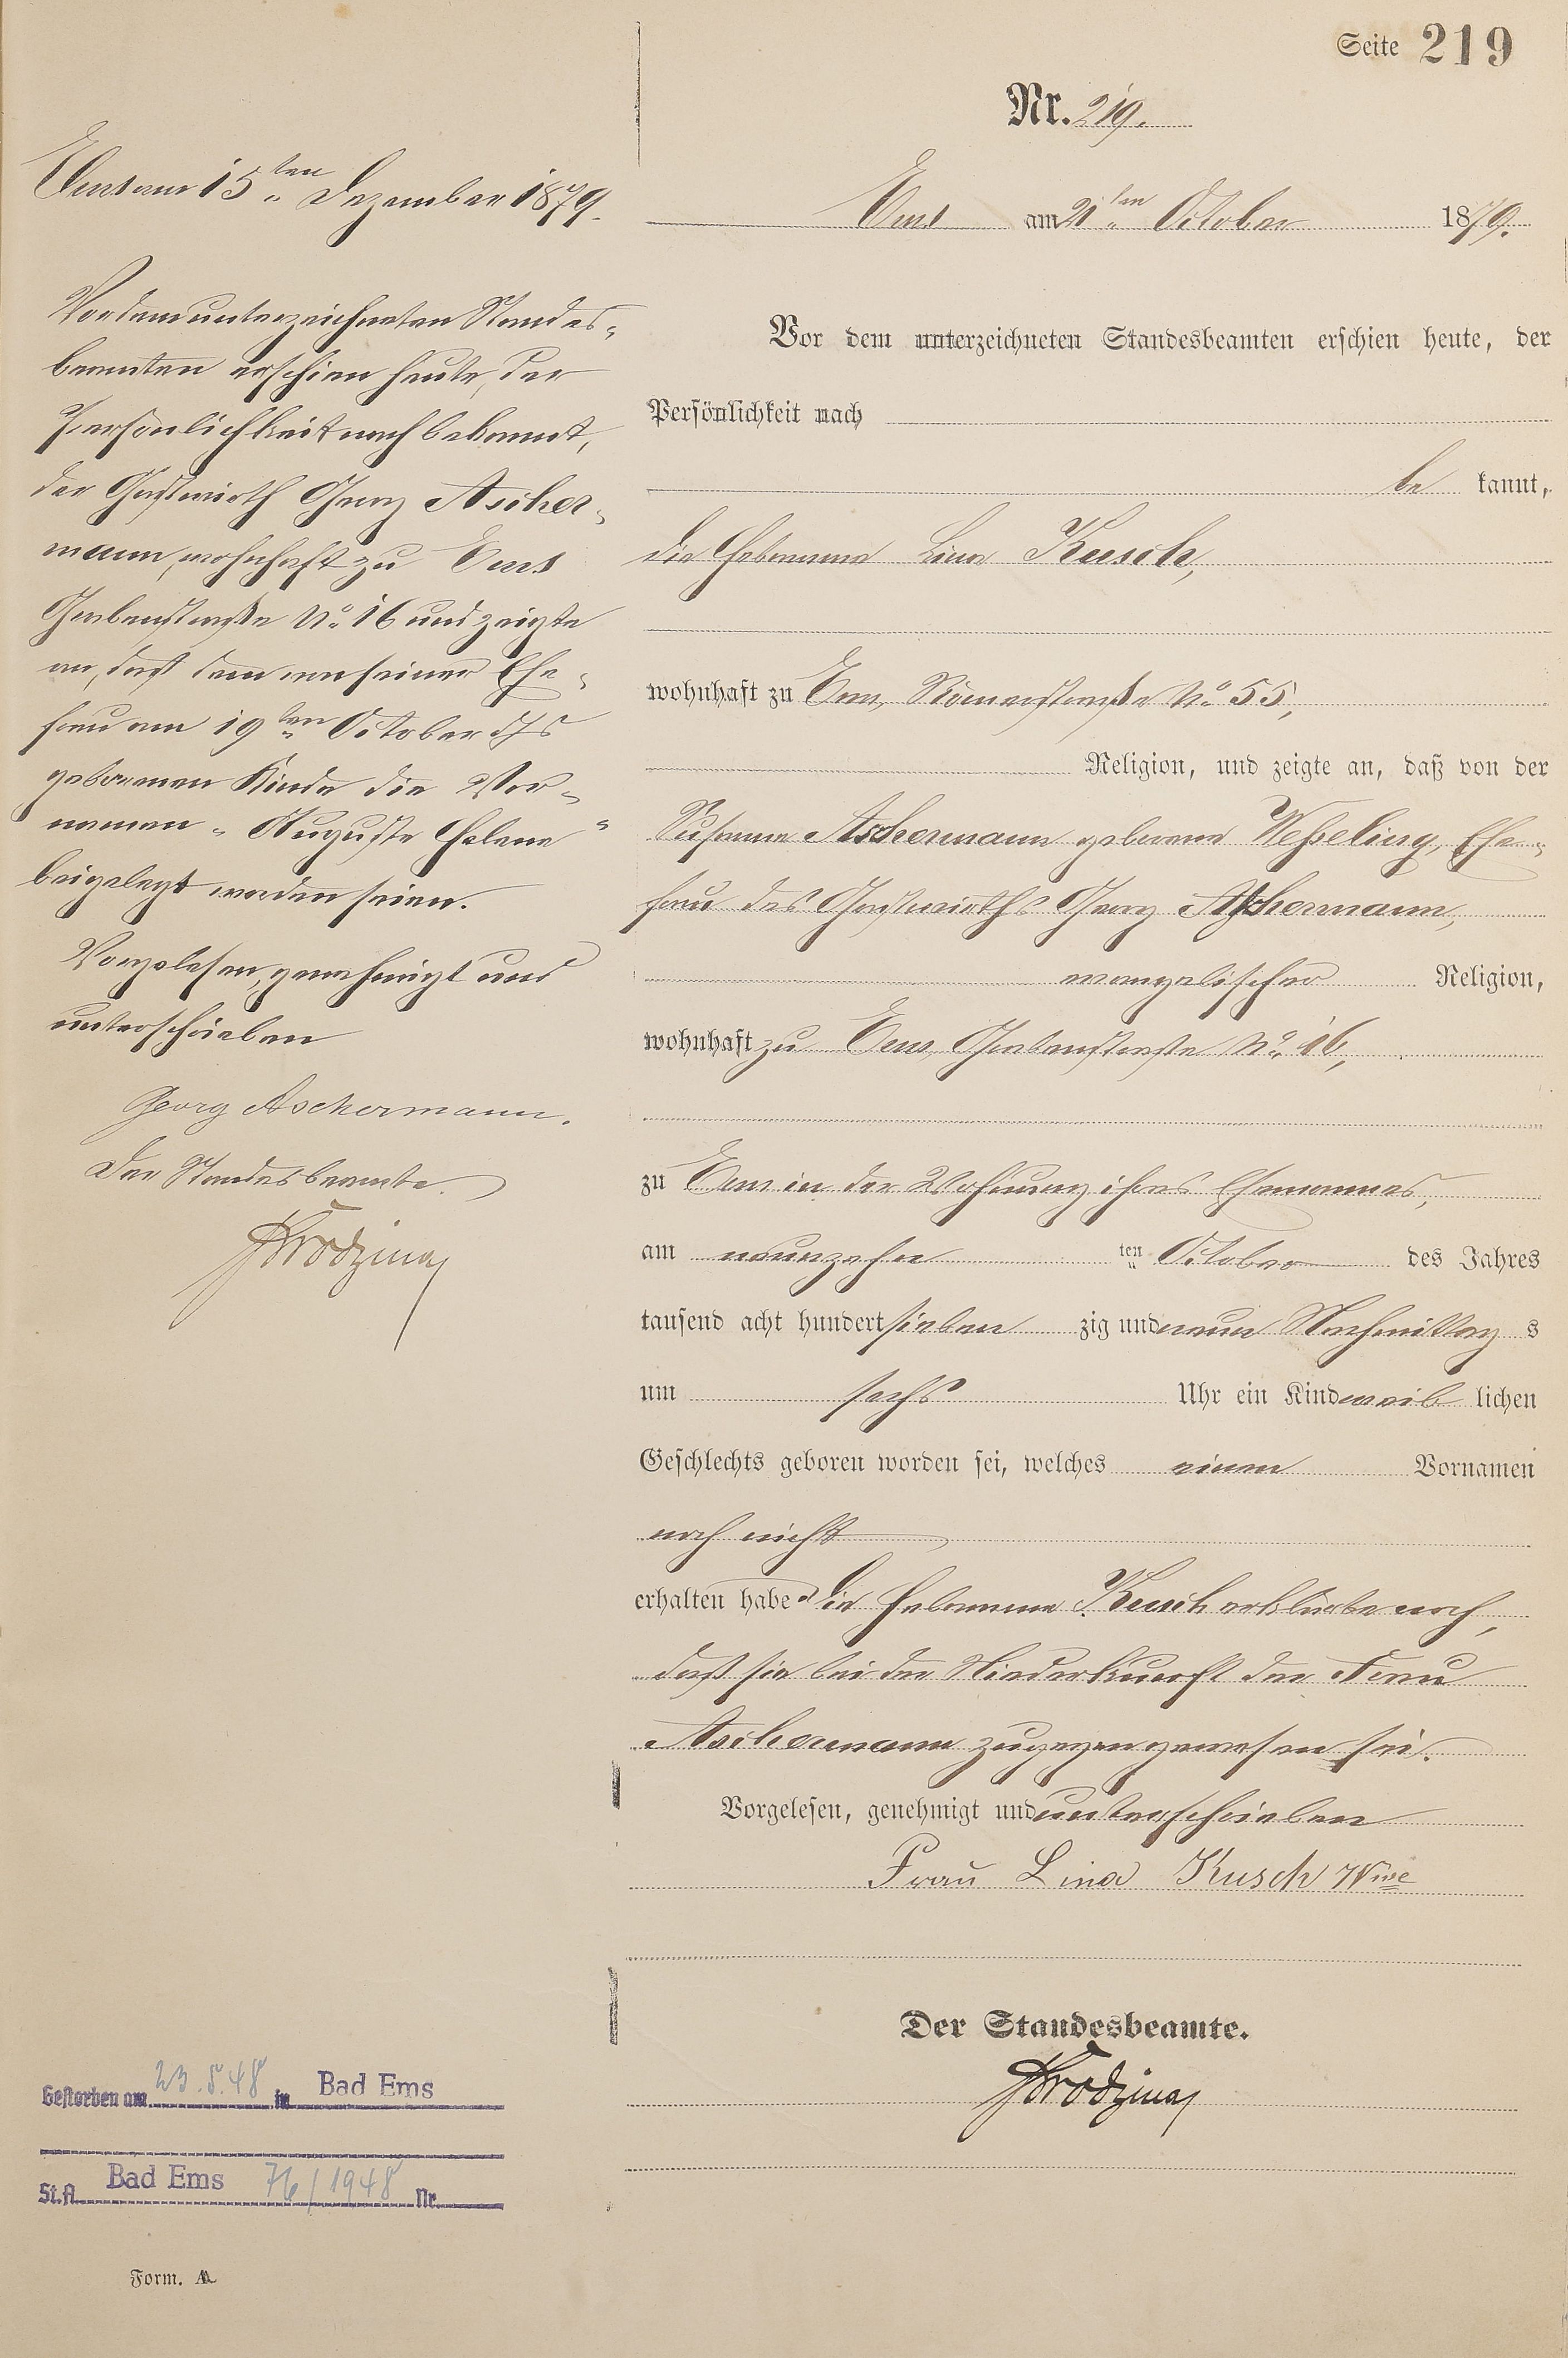 Seite 219
Nr. 219.
Ems am 21ten October 1879.
Vor dem unterzeichneten Standesbeamten erschien heute, der
Persönlichkeit nach
be kannt,
die Hebamme Lina Kusch,
wohnhaft zu Ems, Römerstraße No 55,
Religion, und zeigte an, daß von der
Susanna Aschermann geborene Weßeling, Ehe-
frau des Gastwirths Georg Aschermann,
evangelischer Religion,
wohnhaft zu Ems, Grabenstraße No 16,
zu Ems in der Wohnung ihres Ehemannes,
am neunzehn ten October des Jahres
tausend acht hundert sieben zig und neun Nachmittag s
um sechs Uhr ein Kind weib lichen
Geschlechts geboren worden sei, welches einen Vornamen
noch nicht
erhalten habe. Die Hebamme Kusch erklärte noch,
daß sie bei der Niederkunft der Frau
Aschermann zugegen gewesen sei.
Vorgelesen, genehmigt und unterschrieben
Frau Lina Kusch Wwe
Der Standesbeamte.
Ems am 15ten Dezember 1879.
Vor dem unterzeichneten Standes-
beamten erschien heute, der
Persönlichkeit nach bekannt,
der Gastwirth Georg Ascher-
mann, wohnhaft zu Ems
Grabenstraße No 16 und zeigte
an, daß dem von seiner Ehe-
frau am 19ten October d Js
geborenen Kinde die Vor-
namen "Auguste Helene"
beigelegt worden seien.
Vorgelesen, genehmigt und
unterschrieben
Georg Aschermann.
Der Standesbeamte.
Gestorben am 23.5.48 in Bad Ems
St.A. Bad Ems 76/1948 Nr.
Form. A